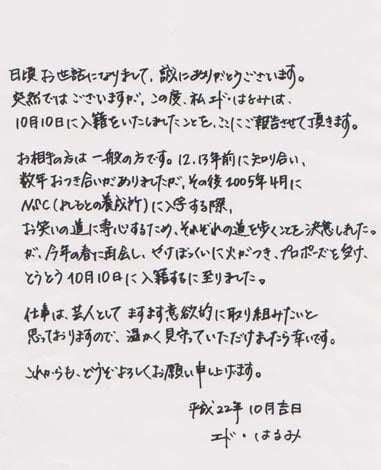 日頃お世話になりまして、誠にありがとうございます。
突然ではございますが、この度、私エド・はるみは、
10月10日に入籍をいたしましたことを、ここにご報告させて頂きます。
お相手の方は一般の方です。12,13年前に知り合い、
数年おつき合いがありましたが、その後2005年4月に
NSC(よしもとの養成所)に入学する際、
お笑いの道に専心するため、それぞれの道を歩くことを決意しました。
が、今年の春に再会し、やけぼっくいに火がつき、プロポーズを受け、
とうとう10月10日に入籍するに至りました。
仕事は、芸人としてますます意欲的に取り組みたいと
思っておりますので、温かく見守っていただけましたら幸いです。
これからも、どうぞよろしくお願い申し上げます。
平成22年10月吉日
エド・はるみ